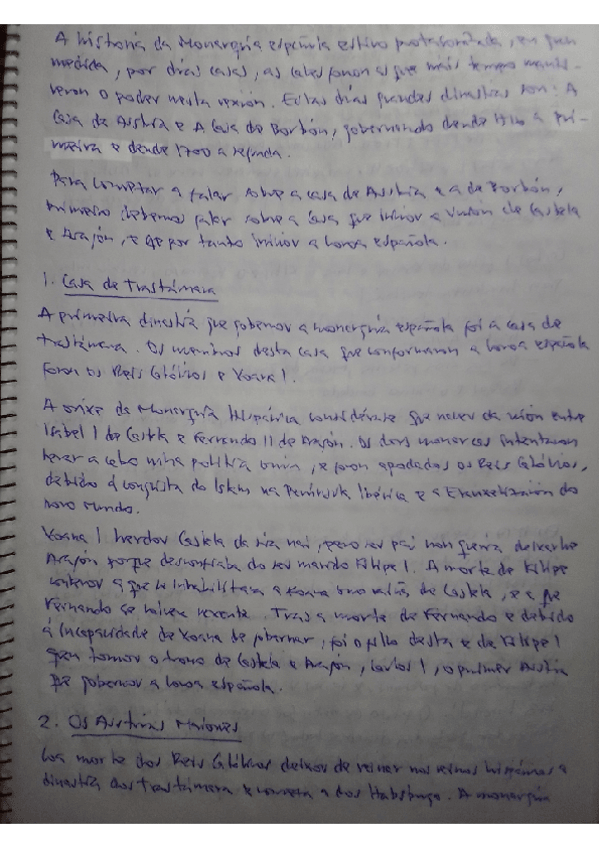 A historia da Monarquía española estivo protagonizada, en gran
medida, por dúas casas, as cales foron as que máis tempo manti-
veron o poder nesta rexión. Estas dúas grandes dinastías son: A
Casa de Austria e A Casa de Borbón, gobernando dende 1516 a pri-
meira e dende 1700 a segunda.
Para comezar a falar sobre a casa de Austria e a de Borbón,
primeiro debemos falar sobre a Casa que iniciou a Unión de Castela
e Aragón, e que por tanto iniciou a Coroa española.
1. Casa de Trastámara
A primeira dinastía que gobernou a monarquía española foi a casa de
Trastámara. Os membros desta casa que conformaron a Coroa española
foron os Reis Católicos e Xoana I.
A orixe da Monarquía Hispánica considérase que naceu da unión entre
Isabel I de Castela e Fernando II de Aragón. Os dous monarcas intentaron
levar a cabo unha política común, e foron apodados os Reis Católicos,
debido á conquista do Islam na Península Ibérica e a Evanxelización do
novo mundo.
Xoana I herdou Castela da súa nai, pero seu pai non quería deixarlle
Aragón porque desconfiaba do seu marido Filipe I. A morte de Filipe
levou a que se inhabilitara a Xoana como raíña de Castela, e a que
Fernando se volvese rexente. Tras a morte de Fernando e debido
á incapacidade de Xoana de gobernar, foi o fillo desta e de Filipe I
quen tomou o trono de Castela e Aragón, Carlos I, o primer Austria
que gobernou a Coroa española.
2. Os Austrias Maiores
Coa morte dos Reis Católicos deixou de reinar nos reinos hispánicos a
dinastía dos Trastámara e comeza a dos Habsburgo. A monarquía